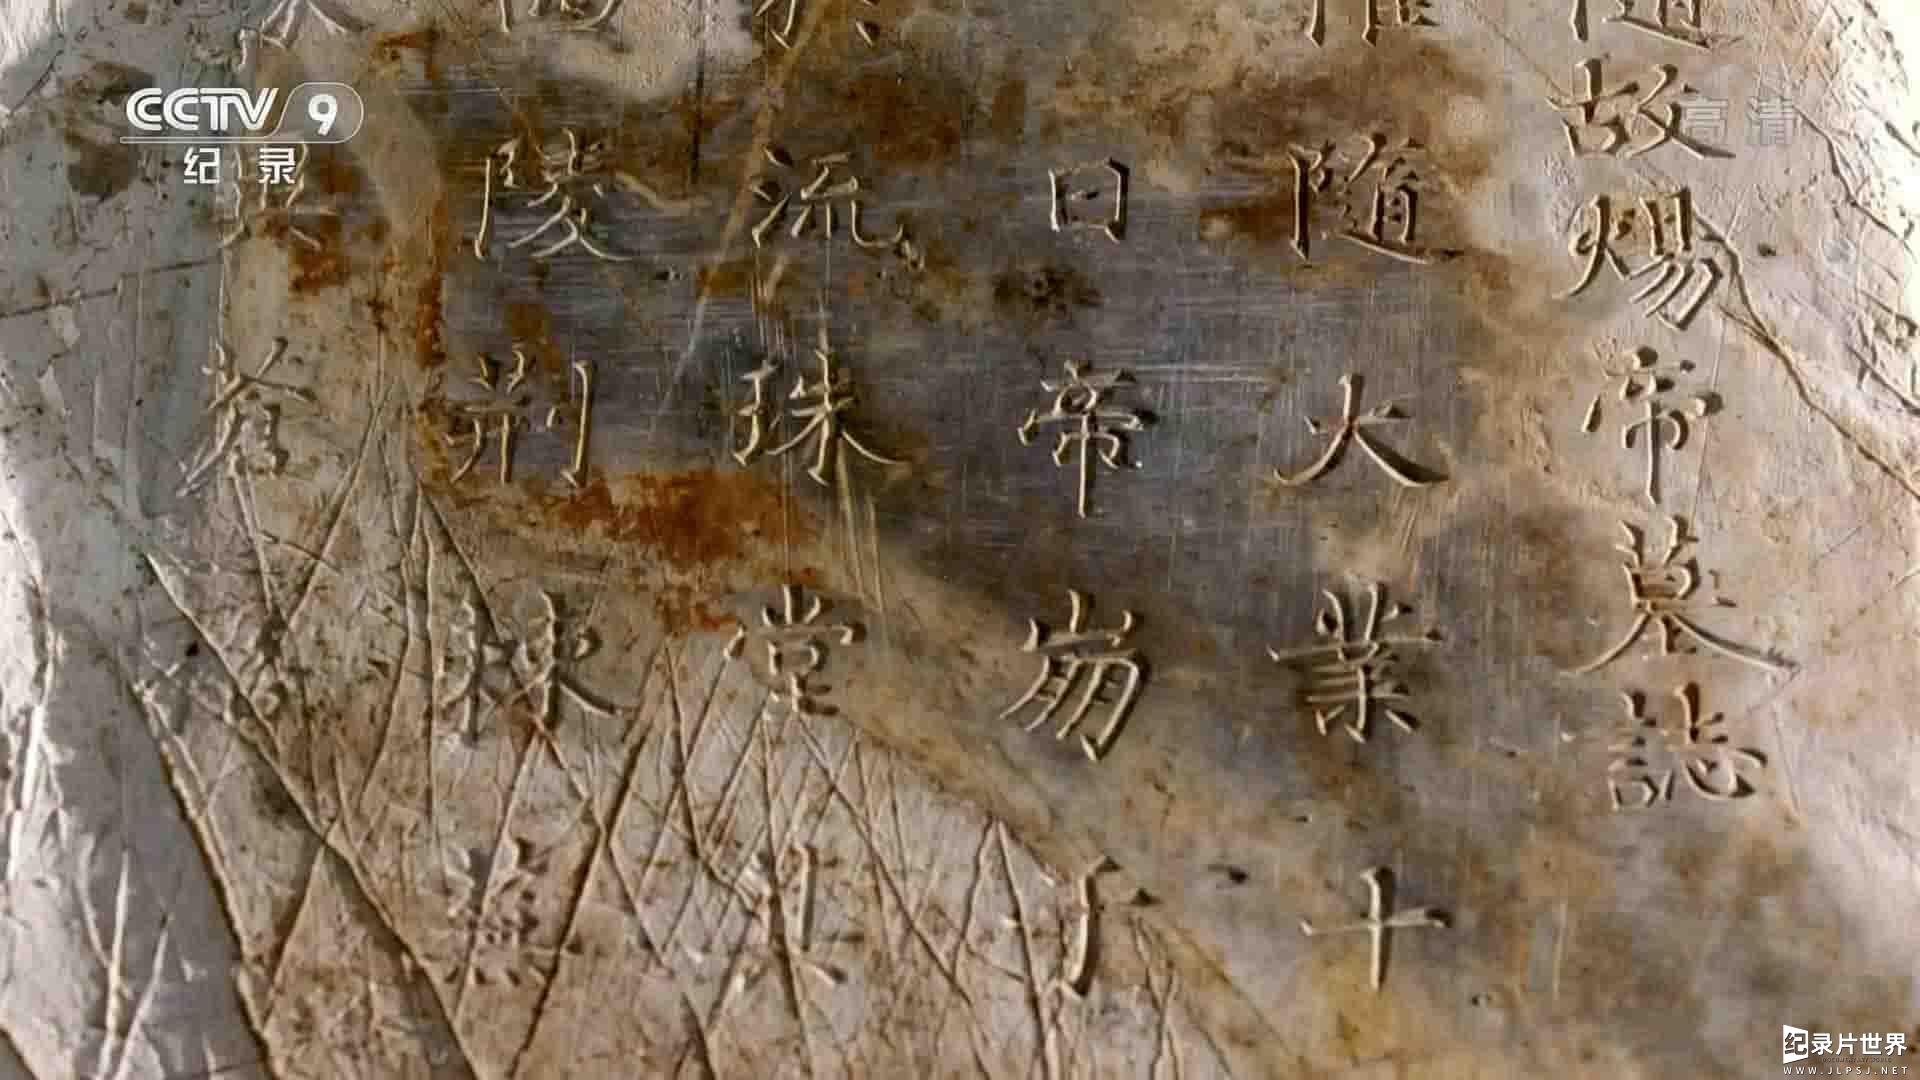 CCTV 9
纪录
高清
随故煬帝墓誌
惟随大業十
日帝崩于
於流珠堂其
陵荊棘蕪
異蒼
纪录片世界
WWW.JLPSJ.NET